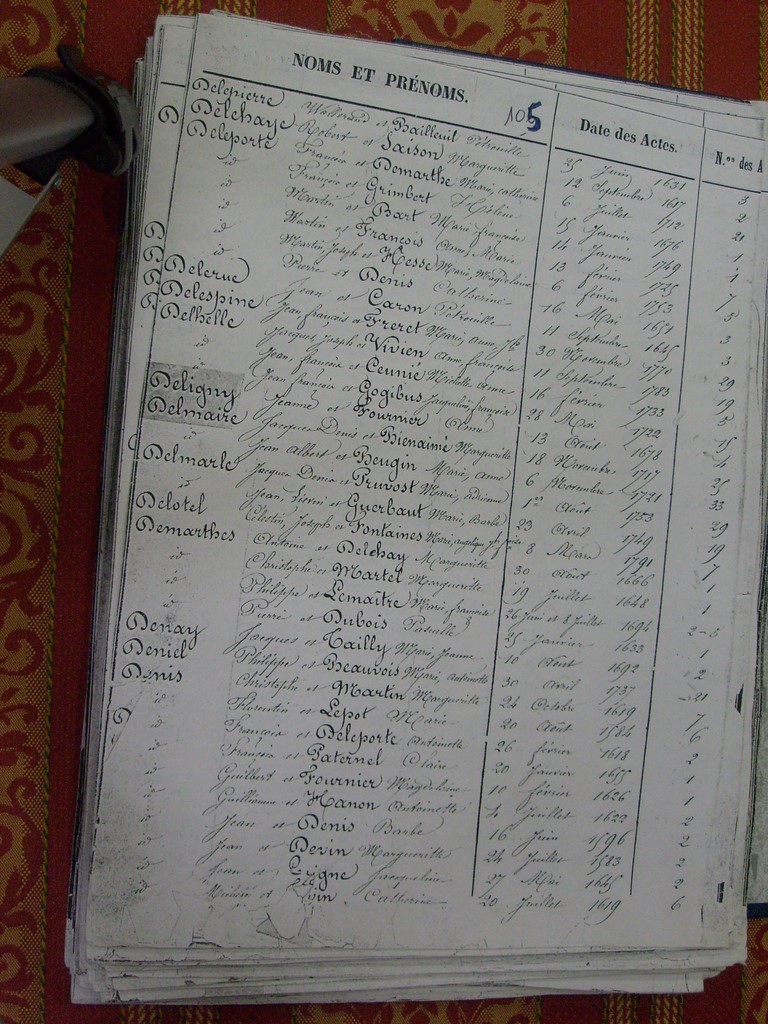 NOMS ET PRÉNOMS. 105 Date des Actes. N.os des A
Delepierre Wallerand et Bailleuil Pétronille 25 Juin 1631 3
Delehaye Robert et Saison Marguerite 12 Septembre 1617 2
Deleporte François et Demarthe Marie, catherine 6 Juillet 1712 21
id François et Grimbert Hélène 15 Janvier 1676 1
id Martin et Bart Marie, françoise 14 Janvier 1749 1
id Martin et François Anne, Marie 13 février 1725 7
id Martin, Joseph et Hesse Marie, Magdelaine 6 février 1753 5
id Pierre et Denis Catherine 16 Mai 1651 3
Delerue Jean et Caron Pétronille 11 Septembre 1645 3
Delespine Jean, françois et Freret Marie, anne, Jph 30 Novembre 1778 29
Delhelle Jacques, Joseph et Vivien Anne, françoise 11 Septembre 1783 19
id Jean, françois et Ceunié Michelle Anne 16 février 1733 5
id Jean françois et Gogibus Jacqueline, françoise 28 Mai 1722 15
Deligny Jeanne et Fournier Anne 13 Août 1678 4
Delmaire Jacques Denis et Bienaimé Marguerite 18 Novembre 1717 25
id Jean Albert et Beugin Marie, Anne 6 Novembre 1721 33
Delmarle Jacques Denis et Pruvost Marie, 1er Août 1753 29
id Jean, Lievin et Guerbaut Marie, Barbe 23 Avril 1749 19
Delotel Célestin, Joseph et Fontaines Marie, 8 Mars 1791 7
Demarthes Antoine et Delehay Marguerite 30 Août 1666 1
id Christophe et Martel Marguerite 19 Juillet 1648 1
id Philippe et Lemaitre Marie, françoise 26 Juin et 8 Juillet 1694 2-5
id Pierre et Dubois 25 Janvier 1633 1
Denay Jacques et Tailly Marie, Jeanne 10 Août 1692 2
Deniel Philippe et Beauvois Marie, Antoinette 30 Avril 1737 21
Denis Christophe et Martin Marguerite 24 Octobre 1619 7
id Florentin et Lepot Marie 20 Août 1584 6
id François et Deleporte Antoinette 26 février 1618 2
id François et Paternel Claire 20 Janvier 1655 1
id Guilbert et Fournier Magdeleine 10 février 1626 1
id Guillaume et Hanon Antoinette 4 Juillet 1622 2
id Jean et Denis Barbe 16 Juin 1596 2
id Jean et Devin Marguerite 24 Juillet 1583 2
id Jean et Jacqueline 27 Mai 1645 2
id et Catherine 20 Juillet 1619 6